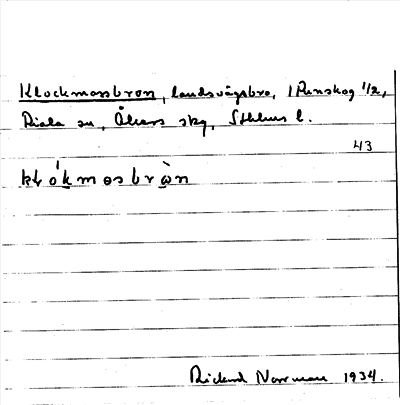 Klockmossbron, landsvägsbro, 1 Runskog 1/2,
Riala sn, Åkers skg, Sthlms l.
43
klókmosbròn
Rickard Norrman 1934.